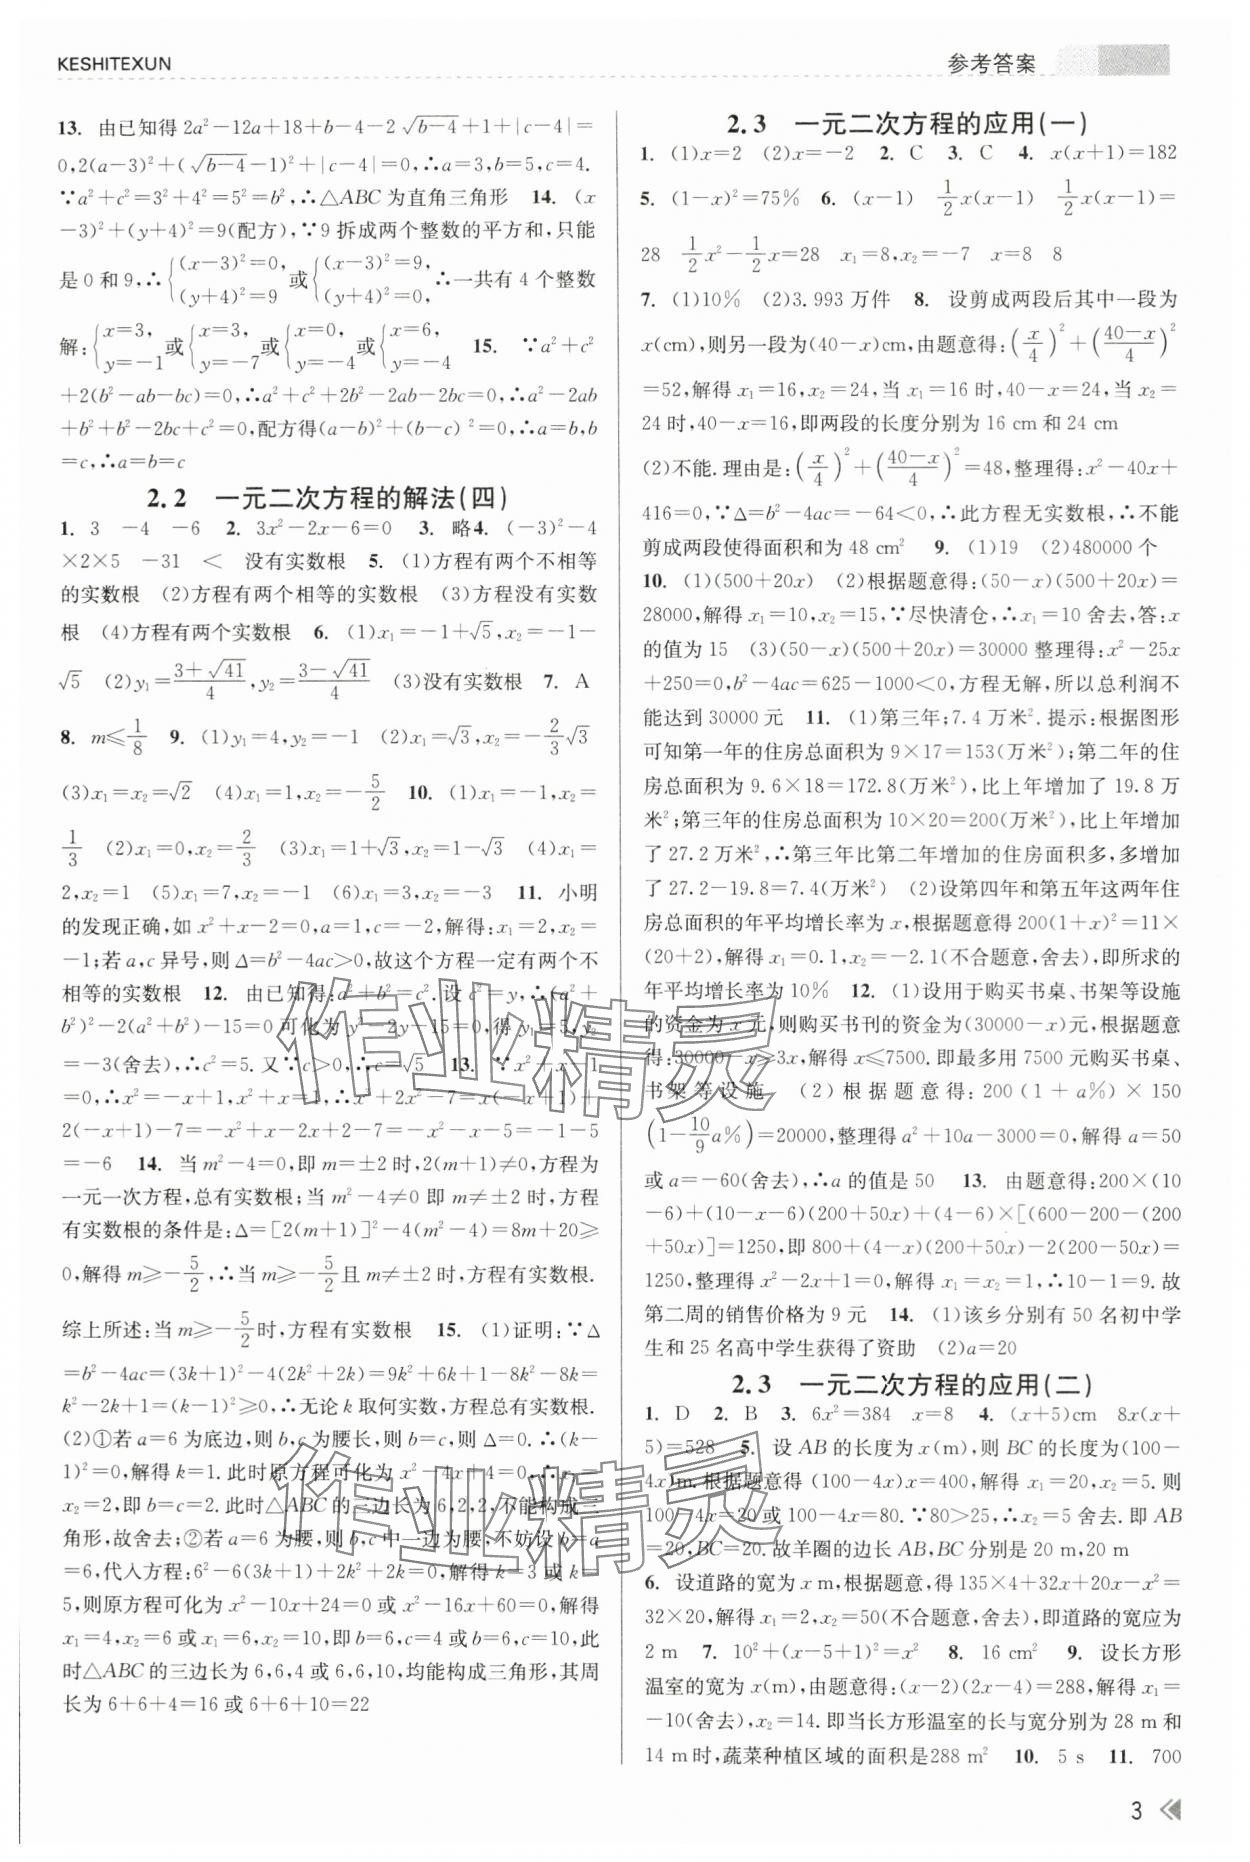 KESHITEXUN
参考答案
13. 由已知得 2a²-12a+18+b-4-2√(b-4)+1+|c-4|=
0,2(a-3)²+(√(b-4)-1)²+|c-4|=0,∴a=3,b=5,c=4.
∵a²+c²=3²+4²=5²=b²,∴△ABC 为直角三角形 14. (x
-3)²+(y+4)²=9(配方),∵9 拆成两个整数的平方和,只能
是 0 和 9,∴{(x-3)²=0,(y+4)²=9 或{(x-3)²=9,(y+4)²=0, ∴一共有 4 个整数
解:{x=3,y=-1 或{x=3,y=-7 或{x=0,y=-4 或{x=6,y=-4 15. ∵a²+c²
+2(b²-ab-bc)=0,∴a²+c²+2b²-2ab-2bc=0,∴a²-2ab
+b²+b²-2bc+c²=0,配方得(a-b)²+(b-c)²=0,∴a=b,b
=c,∴a=b=c
2.2 一元二次方程的解法(四)
1. 3 -4 -6 2. 3x²-2x-6=0 3. 略4. (-3)²-4
×2×5 -31 < 没有实数根 5. (1)方程有两个不相等
的实数根 (2)方程有两个相等的实数根 (3)方程没有实数
根 (4)方程有两个实数根 6. (1)x₁=-1+√5,x₂=-1-
√5 (2)y₁=(3+√41)/4,y₂=(3-√41)/4 (3)没有实数根 7. A
8. m≤1/8 9. (1)y₁=4,y₂=-1 (2)x₁=√3,x₂=-2/3√3
(3)x₁=x₂=√2 (4)x₁=1,x₂=-5/2 10. (1)x₁=-1,x₂=
1/3 (2)x₁=0,x₂=2/3 (3)x₁=1+√3,x₂=1-√3 (4)x₁=
2,x₂=1 (5)x₁=7,x₂=-1 (6)x₁=3,x₂=-3 11. 小明
的发现正确,如 x²+x-2=0,a=1,c=-2,解得:x₁=2,x₂=
-1;若 a,c 异号,则 Δ=b²-4ac>0,故这个方程一定有两个不
相等的实数根 12. 由已知得:a²+b²=c². 设 c²=y,∴(a²+
b²)²-2(a²+b²)-15=0 可化为 y²-2y-15=0,得 y₁=5,y₂
=-3(舍去),∴c²=5. 又∵c>0,∴c=√5 13. ∵x²+x-1
=0,∴x²=-x+1,x²+x=1,∴x³+2x²-7=x(-x+1)+
2(-x+1)-7=-x²+x-2x+2-7=-x²-x-5=-1-5
=-6 14. 当 m²-4=0,即 m=±2 时,2(m+1)≠0,方程为
一元一次方程,总有实数根;当 m²-4≠0 即 m≠±2 时,方程
有实数根的条件是:Δ=[2(m+1)]²-4(m²-4)=8m+20≥
0,解得 m≥-5/2,∴当 m≥-5/2 且 m≠±2 时,方程有实数根.
综上所述:当 m≥-5/2 时,方程有实数根 15. (1)证明:∵Δ
=b²-4ac=(3k+1)²-4(2k²+2k)=9k²+6k+1-8k²-8k=
k²-2k+1=(k-1)²≥0,∴无论 k 取何实数,方程总有实数根.
(2)①若 a=6 为底边,则 b,c 为腰长,则 b=c,则 Δ=0.∴(k-
1)²=0,解得 k=1. 此时原方程可化为 x²-4x+4=0,∴x₁=
x₂=2,即 b=c=2. 此时△ABC 的三边长为 6,2,2,不能构成三
角形,故舍去;②若 a=6 为腰,则 b,c 中一边为腰,不妨设 b=a
=6,代入方程:6²-6(3k+1)+2k²+2k=0,解得 k=3 或 k=
5,则原方程可化为 x²-10x+24=0 或 x²-16x+60=0,解得
x₁=4,x₂=6 或 x₁=6,x₂=10,即 b=6,c=4 或 b=6,c=10,此
时△ABC 的三边长为 6,6,4 或 6,6,10,均能构成三角形,其周
长为 6+6+4=16 或 6+6+10=22
2.3 一元二次方程的应用(一)
1. (1)x=2 (2)x=-2 2. C 3. C 4. x(x+1)=182
5. (1-x)²=75% 6. (x-1) 1/2x(x-1) 1/2x(x-1)=
28 1/2x²-1/2x=28 x₁=8,x₂=-7 x=8 8
7. (1)10% (2)3.993 万件 8. 设剪成两段后其中一段为
x(cm),则另一段为(40-x)cm,由题意得:(x/4)²+((40-x)/4)²
=52,解得 x₁=16,x₂=24,当 x₁=16 时,40-x=24,当 x₂=
24 时,40-x=16,即两段的长度分别为 16 cm 和 24 cm
(2)不能.理由是:(x/4)²+((40-x)/4)²=48,整理得:x²-40x+
416=0,∵Δ=b²-4ac=-64<0,∴此方程无实数根,∴不能
剪成两段使得面积和为 48 cm² 9. (1)19 (2)480000 个
10. (1)(500+20x) (2)根据题意得:(50-x)(500+20x)=
28000,解得 x₁=10,x₂=15,∵尽快清仓,∴x₁=10 舍去,答:x
的值为 15 (3)(50-x)(500+20x)=30000 整理得:x²-25x
+250=0,b²-4ac=625-1000<0,方程无解,所以总利润不
能达到 30000 元 11. (1)第三年;7.4 万米². 提示:根据图形
可知第一年的住房总面积为 9×17=153(万米²);第二年的住
房总面积为 9.6×18=172.8(万米²),比上年增加了 19.8 万
米²;第三年的住房总面积为 10×20=200(万米²),比上年增加
了 27.2 万米²,∴第三年比第二年增加的住房面积多,多增加
了 27.2-19.8=7.4(万米²) (2)设第四年和第五年这两年住
房总面积的年平均增长率为 x,根据题意得 200(1+x)²=11×
(20+2),解得 x₁=0.1,x₂=-2.1(不合题意,舍去),即所求的
年平均增长率为 10% 12. (1)设用于购买书桌、书架等设施
的资金为 x 元,则购买书刊的资金为(30000-x)元,根据题意
得:30000-x≥3x,解得 x≤7500. 即最多用 7500 元购买书桌、
书架等设施 (2)根据题意得:200(1+a%)×150
(1-10/9a%)=20000,整理得 a²+10a-3000=0,解得 a=50
或 a=-60(舍去),∴a 的值是 50 13. 由题意得:200×(10
-6)+(10-x-6)(200+50x)+(4-6)×[(600-200-(200
+50x)]=1250,即 800+(4-x)(200+50x)-2(200-50x)=
1250,整理得 x²-2x+1=0,解得 x₁=x₂=1,∴10-1=9. 故
第二周的销售价格为 9 元 14. (1)该乡分别有 50 名初中学
生和 25 名高中学生获得了资助 (2)a=20
2.3 一元二次方程的应用(二)
1. D 2. B 3. 6x²=384 x=8 4. (x+5)cm 8x(x+
5)=528 5. 设 AB 的长度为 x(m),则 BC 的长度为(100-
4x)m. 根据题意得 (100-4x)x=400,解得 x₁=20,x₂=5. 则
100-4x=20 或 100-4x=80. ∵80>25,∴x₂=5 舍去. 即 AB
=20,BC=20. 故羊圈的边长 AB,BC 分别是 20 m,20 m
6. 设道路的宽为 x m,根据题意,得 135×4+32x+20x-x²=
32×20,解得 x₁=2,x₂=50(不合题意,舍去),即道路的宽应为
2 m 7. 10²+(x-5+1)²=x² 8. 16 cm² 9. 设长方形
温室的宽为 x(m),由题意得:(x-2)(2x-4)=288,解得 x₁=
-10(舍去),x₂=14. 即当长方形温室的长与宽分别为 28 m 和
14 m时,蔬菜种植区域的面积是288 m² 10. 5 s 11. 700
3
作业精灵
作业精灵